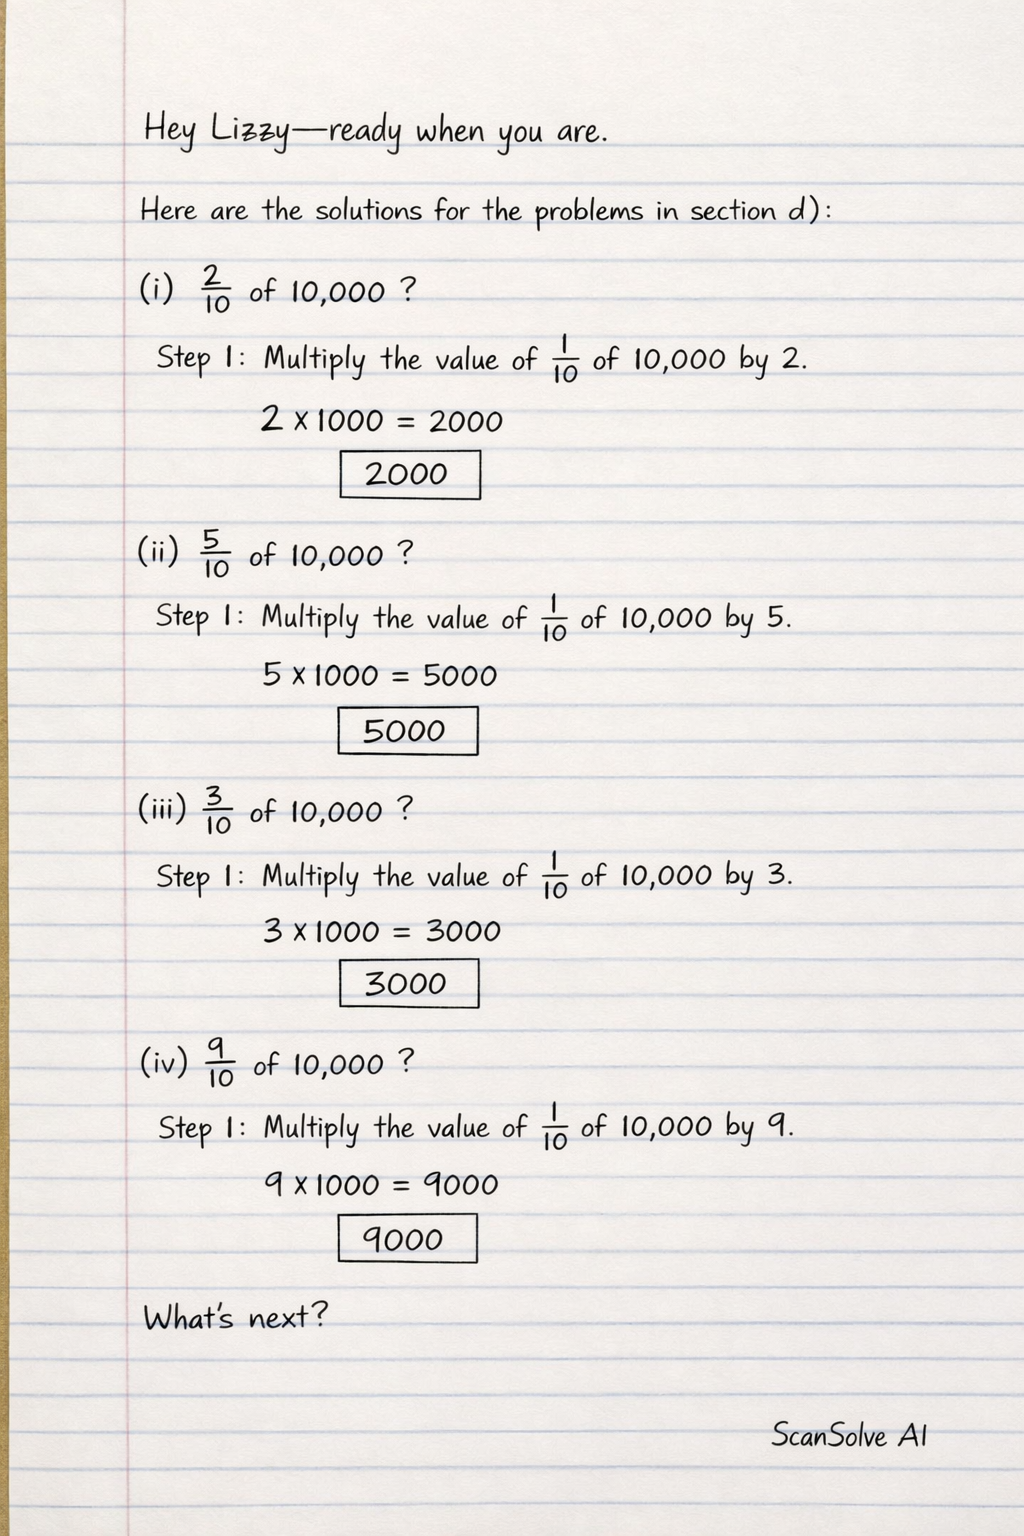 Hey Lizzy—ready when you are.
Here are the solutions for the problems in section d):
(i) 2/10 of 10,000 ?
Step 1: Multiply the value of 1/10 of 10,000 by 2.
2 x 1000 = 2000
2000
(ii) 5/10 of 10,000 ?
Step 1: Multiply the value of 1/10 of 10,000 by 5.
5 x 1000 = 5000
5000
(iii) 3/10 of 10,000 ?
Step 1: Multiply the value of 1/10 of 10,000 by 3.
3 x 1000 = 3000
3000
(iv) 9/10 of 10,000 ?
Step 1: Multiply the value of 1/10 of 10,000 by 9.
9 x 1000 = 9000
9000
What's next?
ScanSolve AI